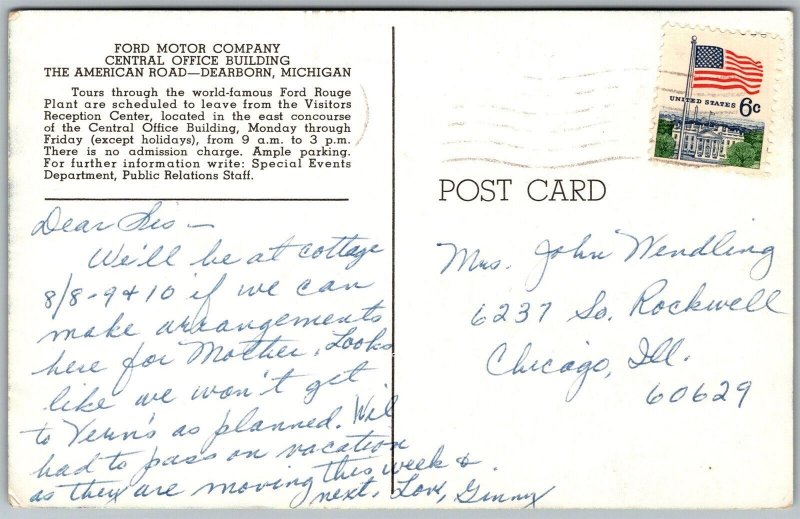 FORD MOTOR COMPANY
CENTRAL OFFICE BUILDING
THE AMERICAN ROAD—DEARBORN, MICHIGAN
Tours through the world-famous Ford Rouge
Plant are scheduled to leave from the Visitors
Reception Center, located in the east concourse
of the Central Office Building, Monday through
Friday (except holidays), from 9 a.m. to 3 p.m.
There is no admission charge. Ample parking.
For further information write: Special Events
Department, Public Relations Staff.
Dear Sis —
We'll be at cottage
8/8-9&10 if we can
make arrangements
here for Mother. Looks
like we won't get
to Vern's as planned. Wil
had to pass on vacation
as they are moving this week &
next. Love, Ginny
UNITED STATES 6c
POST CARD
Mrs. John Wendling
6237 So. Rockwell
Chicago, Ill.
60629